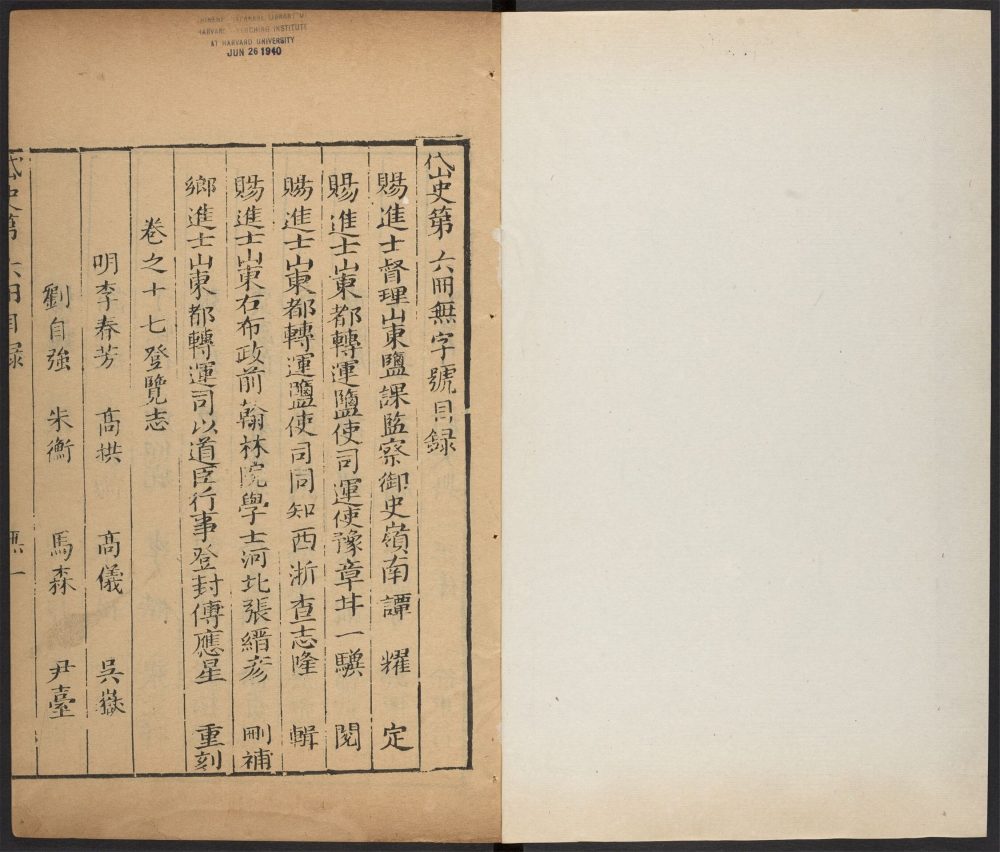 CHINESE JAPANESE LIBRARY OF
HARVARD YENCHING INSTITUTE
AT HARVARD UNIVERSITY
JUN 26 1940
岱史第六冊無字號目録
賜進士督理山東鹽課監察御史嶺南譚耀定
賜進士山東都轉運鹽使司運使豫章甘一驥閱
賜進士山東都轉運鹽使司同知西浙查志隆輯
賜進士山東右布政前翰林院學士河北張縉彥刪補
鄉進士山東都轉運司以道臣行事登封傅應星重刻
卷之十七登覽志
明李春芳 高拱 高儀 吳嶽
劉自強 朱衡 馬森 尹臺
岱史第六冊目録 無一